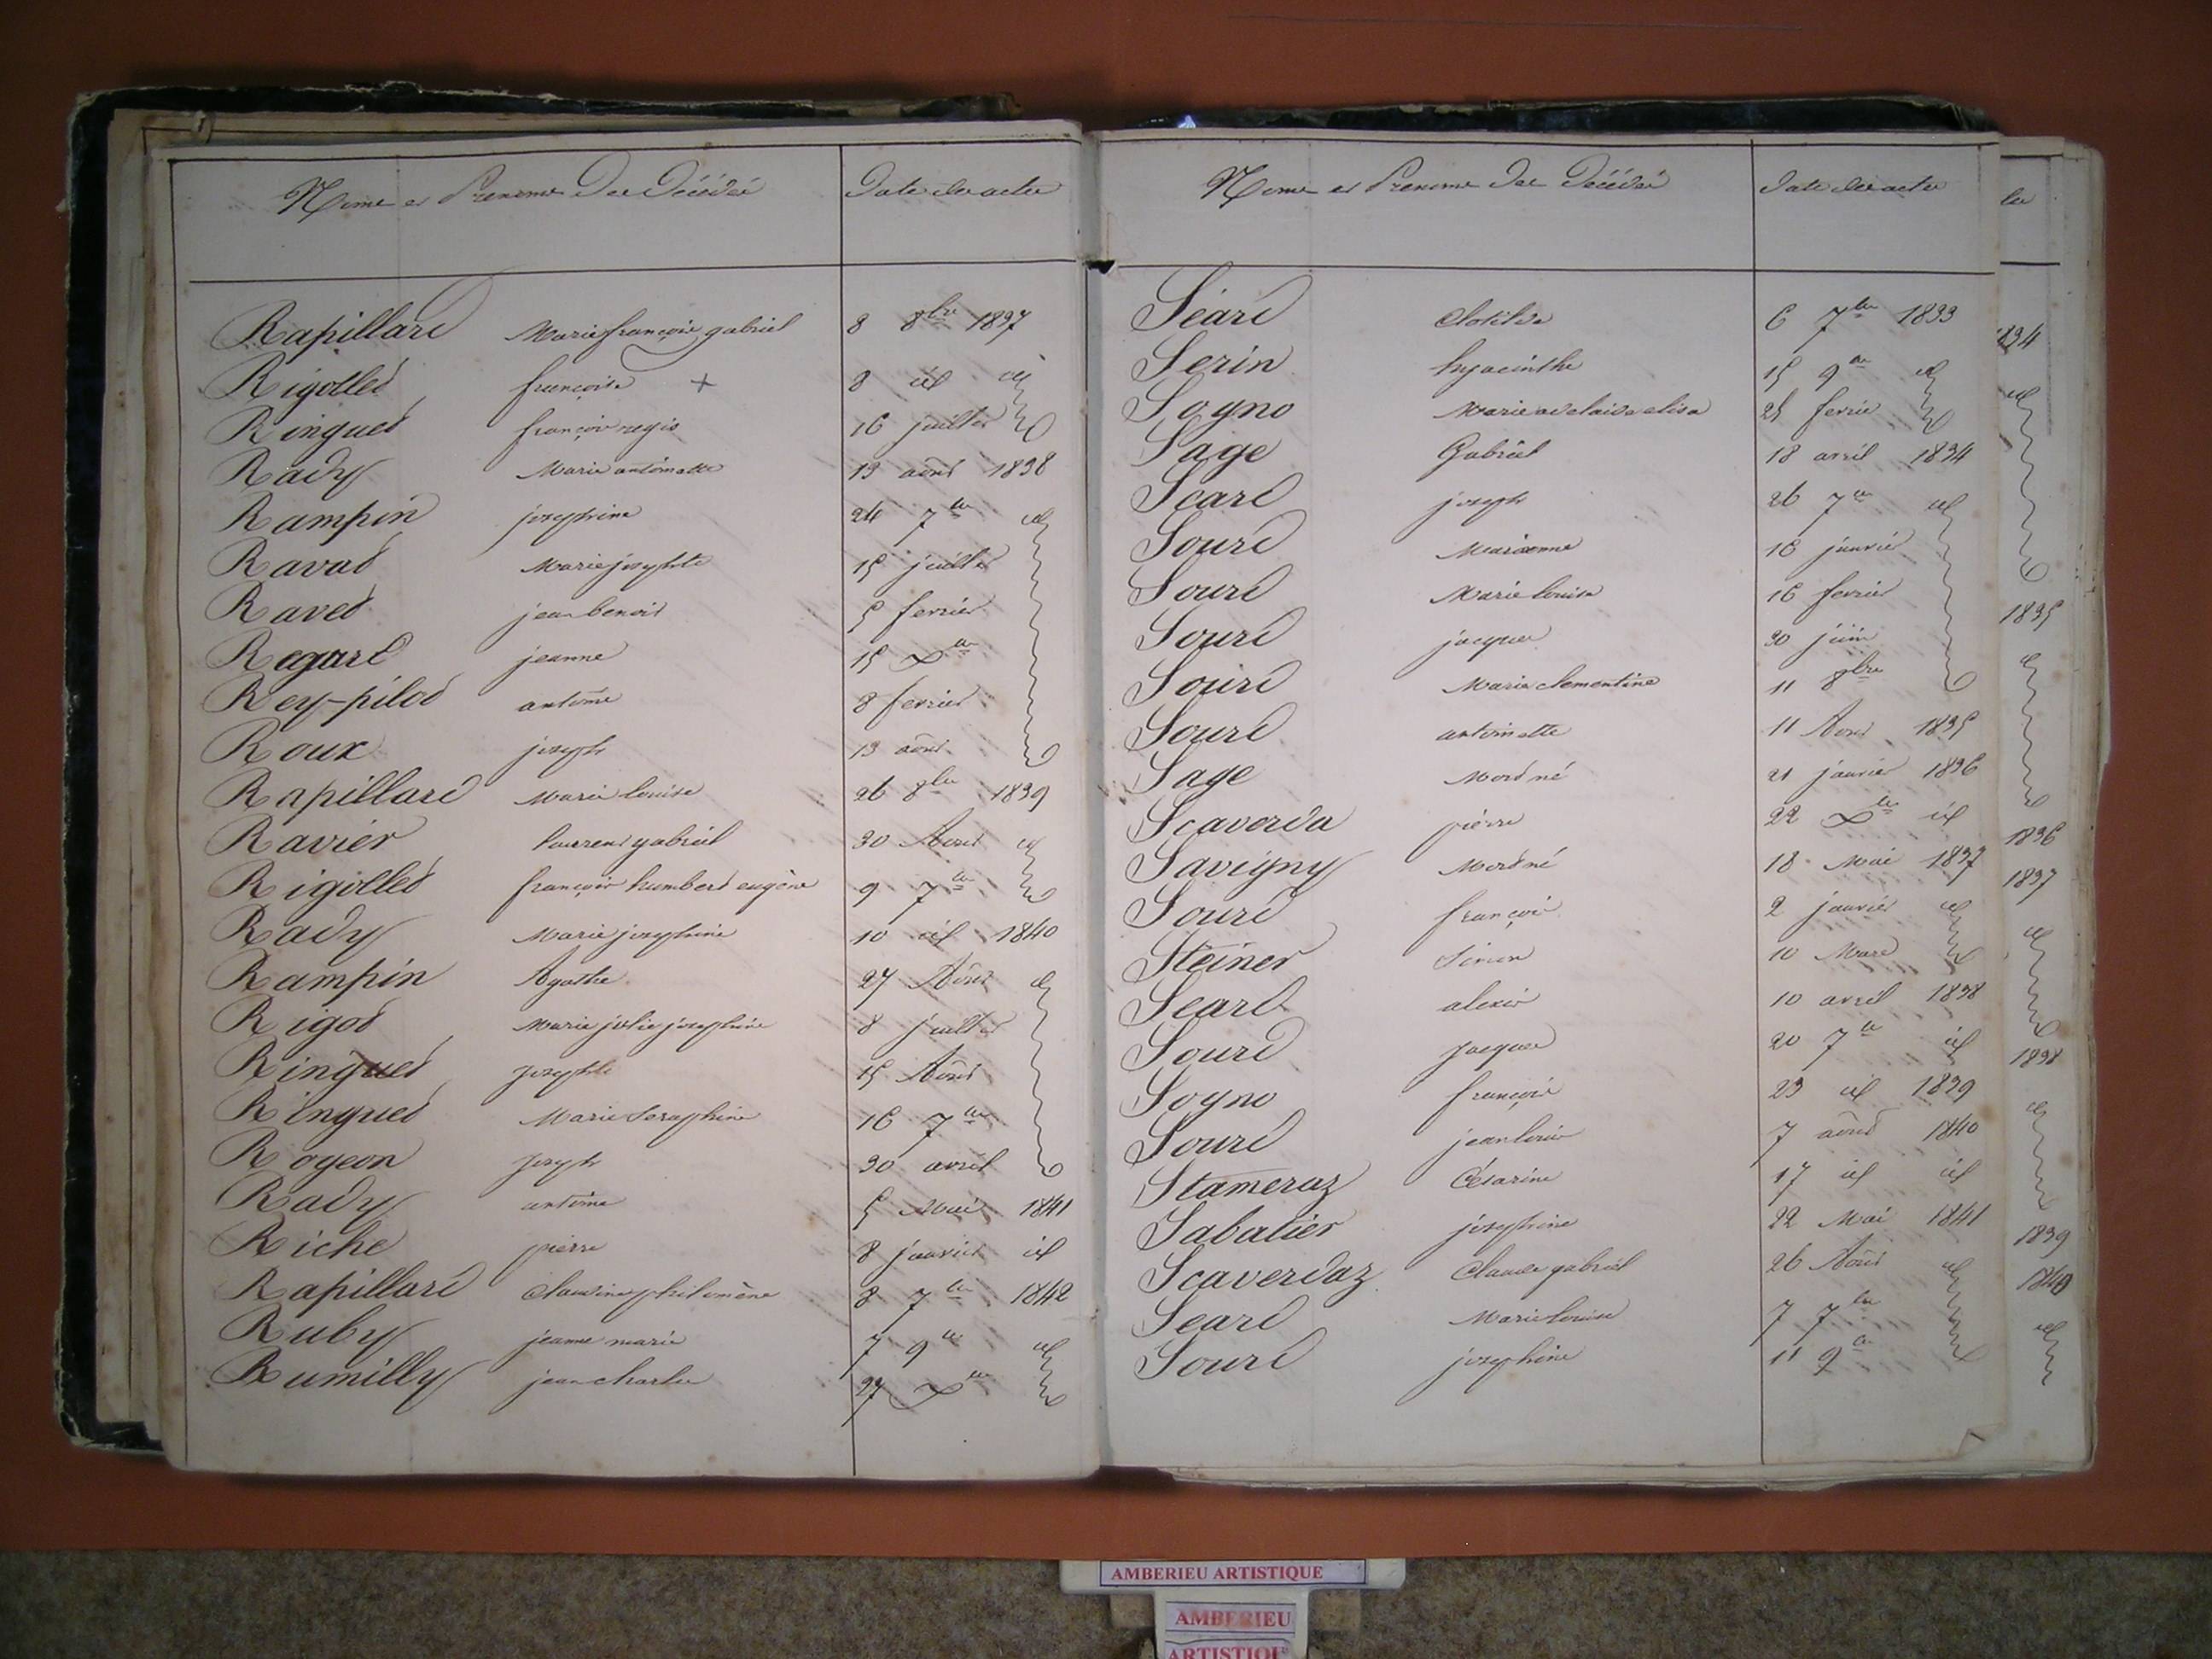 Noms et Prénoms des Décédés Date des actes
Rapillard Marie françoise gabriel 8 8bre 1837
Rigollet françoise + 8 id id
Ringuet françois regis 16 juillet
Rady Marie antoinette 13 août 1838
Rampin josephine 24 7bre id
Ravat Marie josephte 15 juillet
Ravet jean benoit 5 fevrier
Regard jeanne 15 Xbre
Rey-pilod antoine 8 fevrier
Roux joseph 13 août
Rapillard Marie louise 26 8bre 1839
Ravier laurent gabriel 30 Aout id
Rigollet françois humbert eugène 9 7bre
Rady Marie josephine 10 id 1840
Rampin Agathe 27 Août id
Rigod Marie julie josephine 8 juillet
Ringuet Josephte 15 Août
Ringuet Marie Seraphine 16 7bre
Rogeon Joseph 30 avril
Rady antoine 5 Mai 1841
Riche pierre 8 janvier id
Rapillard Claudine philomène 8 7bre 1842
Ruby jeanne marie 7 9bre id
Rumilly jean charles 27 Xbre
Noms et Prénoms des Décédés Date des actes
Séard Clotilde 6 7bre 1833
Serin hyacinthe 15 9bre id
Sogno Marie adelaide elisa 25 fevrier
Sage Gabriel 18 avril 1834
Seard joseph 26 7bre id
Sourd Marianne 16 janvier
Sourd Marie louise 16 fevrier
Sourd jacques 30 juin
Sourd Marie clementine 11 8bre
Sourd antoinette 11 Aout 1835
Sage Mort né 21 janvier 1836
Scaverda pierre 22 Xbre id
Savigny Mort né 18 Mai 1837
Sourd françois 2 janvier id
Steiner Simon 10 Mars
Seard alexis 10 avril 1838
Sourd Jacques 20 7bre id
Sogno françois 23 id 1839
Sourd jean louis 7 août 1840
Stameraz Césarine 17 id id
Sabatier josephine 22 Mai 1841
Scaverdaz Claude gabriel 26 Août id
Seard Marie louise 7 7bre
Sourd josephine 11 9bre
1834
id
1835
id
1836
1837
id
1838
id
1839
1840
id
AMBERIEU ARTISTIQUE
AMBERIEU
ARTISTIQUE